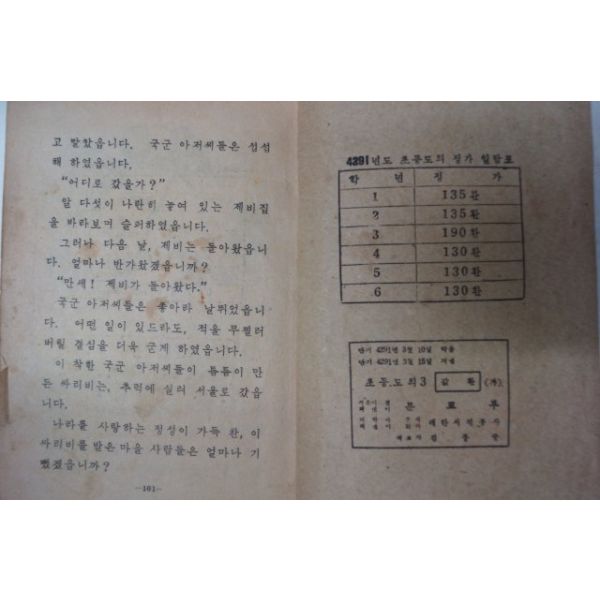 고 말았읍니다. 국군 아저씨들은 섭섭
해 하였읍니다.
"어디로 갔을가?"
알 다섯이 나란히 놓여 있는 제비집
을 바라보며 슬퍼하였읍니다.
그러나 다음 날, 제비는 돌아왔읍니
다. 얼마나 반가왔겠읍니까?
"만세! 제비가 돌아왔다."
국군 아저씨들은 좋아라 날뛰었읍니
다. 어떤 일이 있드라도, 적을 무찔러
버릴 결심을 더욱 굳게 하였읍니다.
이 착한 국군 아저씨들이 틈틈이 만
든 싸리비는, 추럭에 실려 서울로 갔읍
니다.
나라를 사랑하는 정성이 가득 찬, 이
싸리비를 받은 마을 사람들은 얼마나 기
뻤겠읍니까?
—101—
4291년도 초등도의 정가 일람표
학 년 정 가
1 135환
2 135환
3 190환
4 130환
5 130환
6 130환
단기 4291년 3월 10일
단기 4291년 3월 15일
초등도의 3 값 환 (가)
문 교 부
대한서적공사
대표자